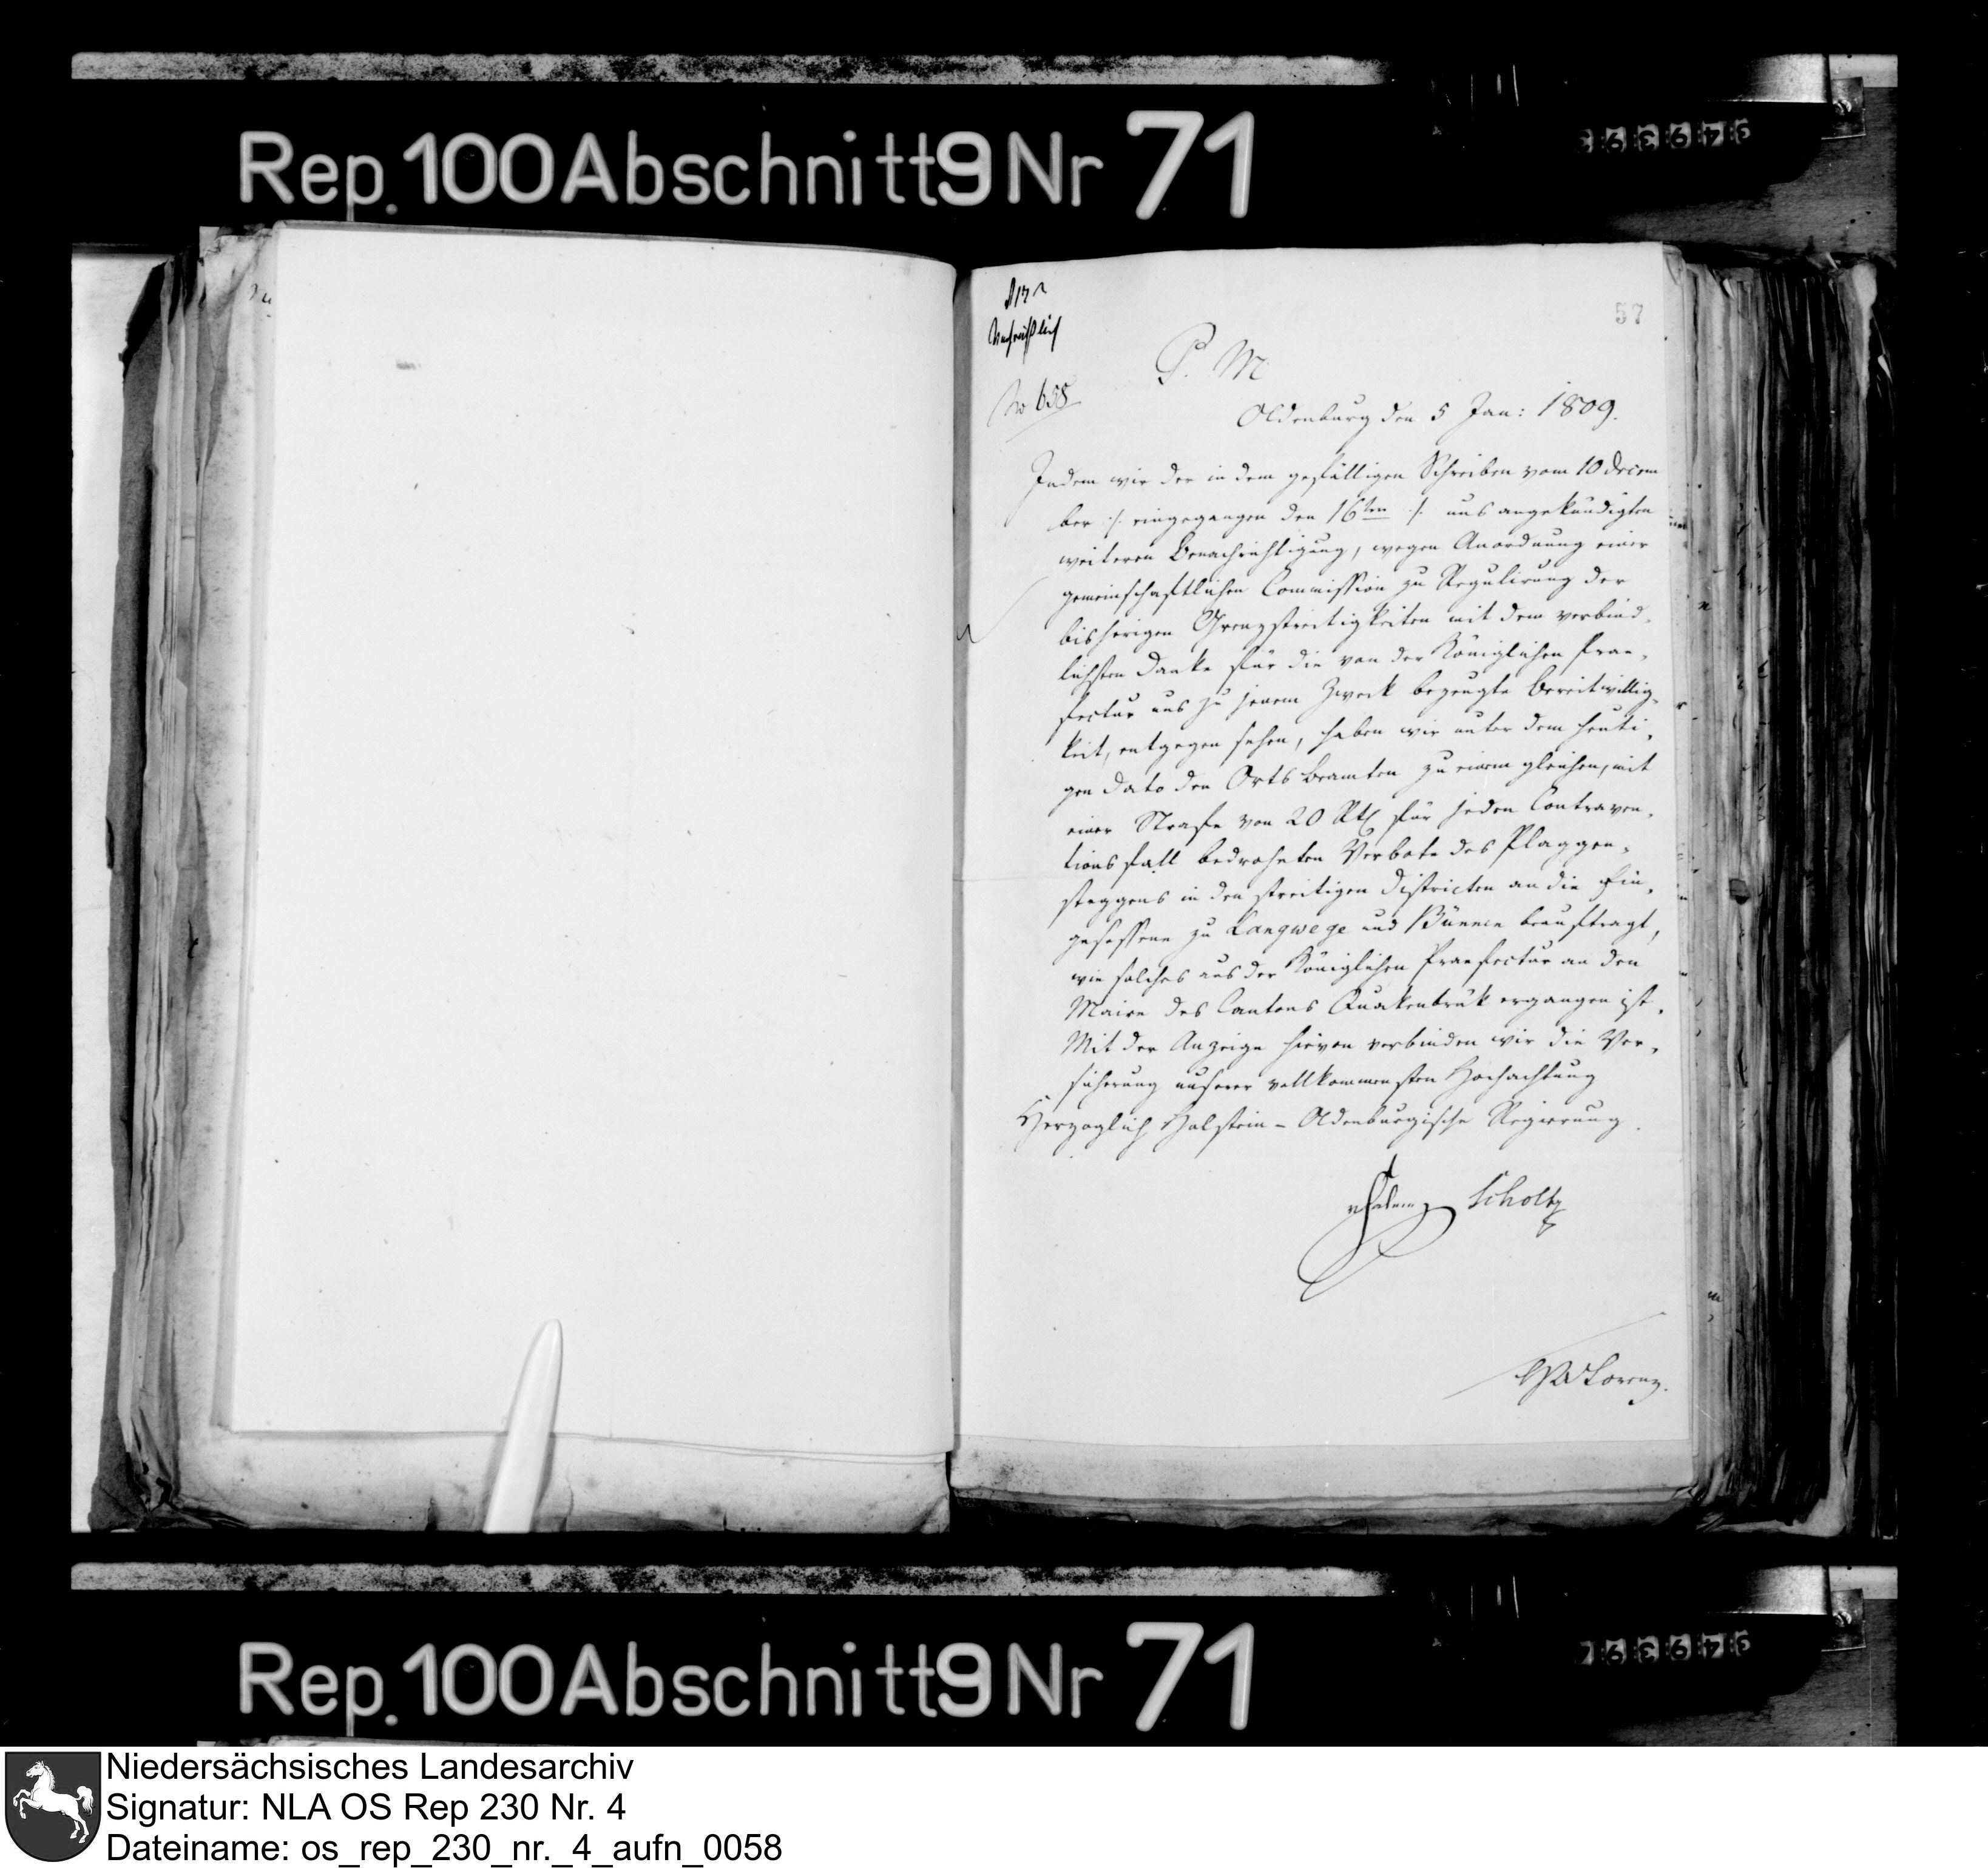 Rep. 100 Abschnitt 9 Nr 71
57
No 658
P. M
Oldenburg den 5 Jan: 1809.
Indem wir der in dem gefälligen Schreiben vom 10 Decem
ber ./. eingegangen den 16ten ./. uns angekündigten
weiteren Benachrichtigung, wegen Anordnung einer
gemeinschaftlichen Commission zu Regulirung der
bisherigen Grenzstreitigkeiten mit dem verbind-
lichsten Danke für die von der Königlichen Prae-
fectur uns zu jenem Zweck bezeugte Bereitwillig-
keit, entgegen sehen, haben wir unter dem heuti-
gen Dato den Orts Beamten zu einem gleichen, mit
einer Strafe von 20 Rt für jeden Contraven-
tionsfall bedroheten Verbote des Plaggen-
in den streitigen Districten an die Ein-
gesessene zu Langwege und Bünnen beauftragt,
wie solches aus der Königlichen Praefectur an den
Maire des Cantons Quakenbrük ergangen ist.
Mit der Anzeige hievon verbinden wir die Ver-
sicherung unserer vollkommensten Hochachtung
Herzoglich Holstein-Oldenburgische Regierung.
vHalem Scholtz
Lorenz.
Rep. 100 Abschnitt 9 Nr 71
Niedersächsisches Landesarchiv
Signatur: NLA OS Rep 230 Nr. 4
Dateiname: os_rep_230_nr._4_aufn_0058